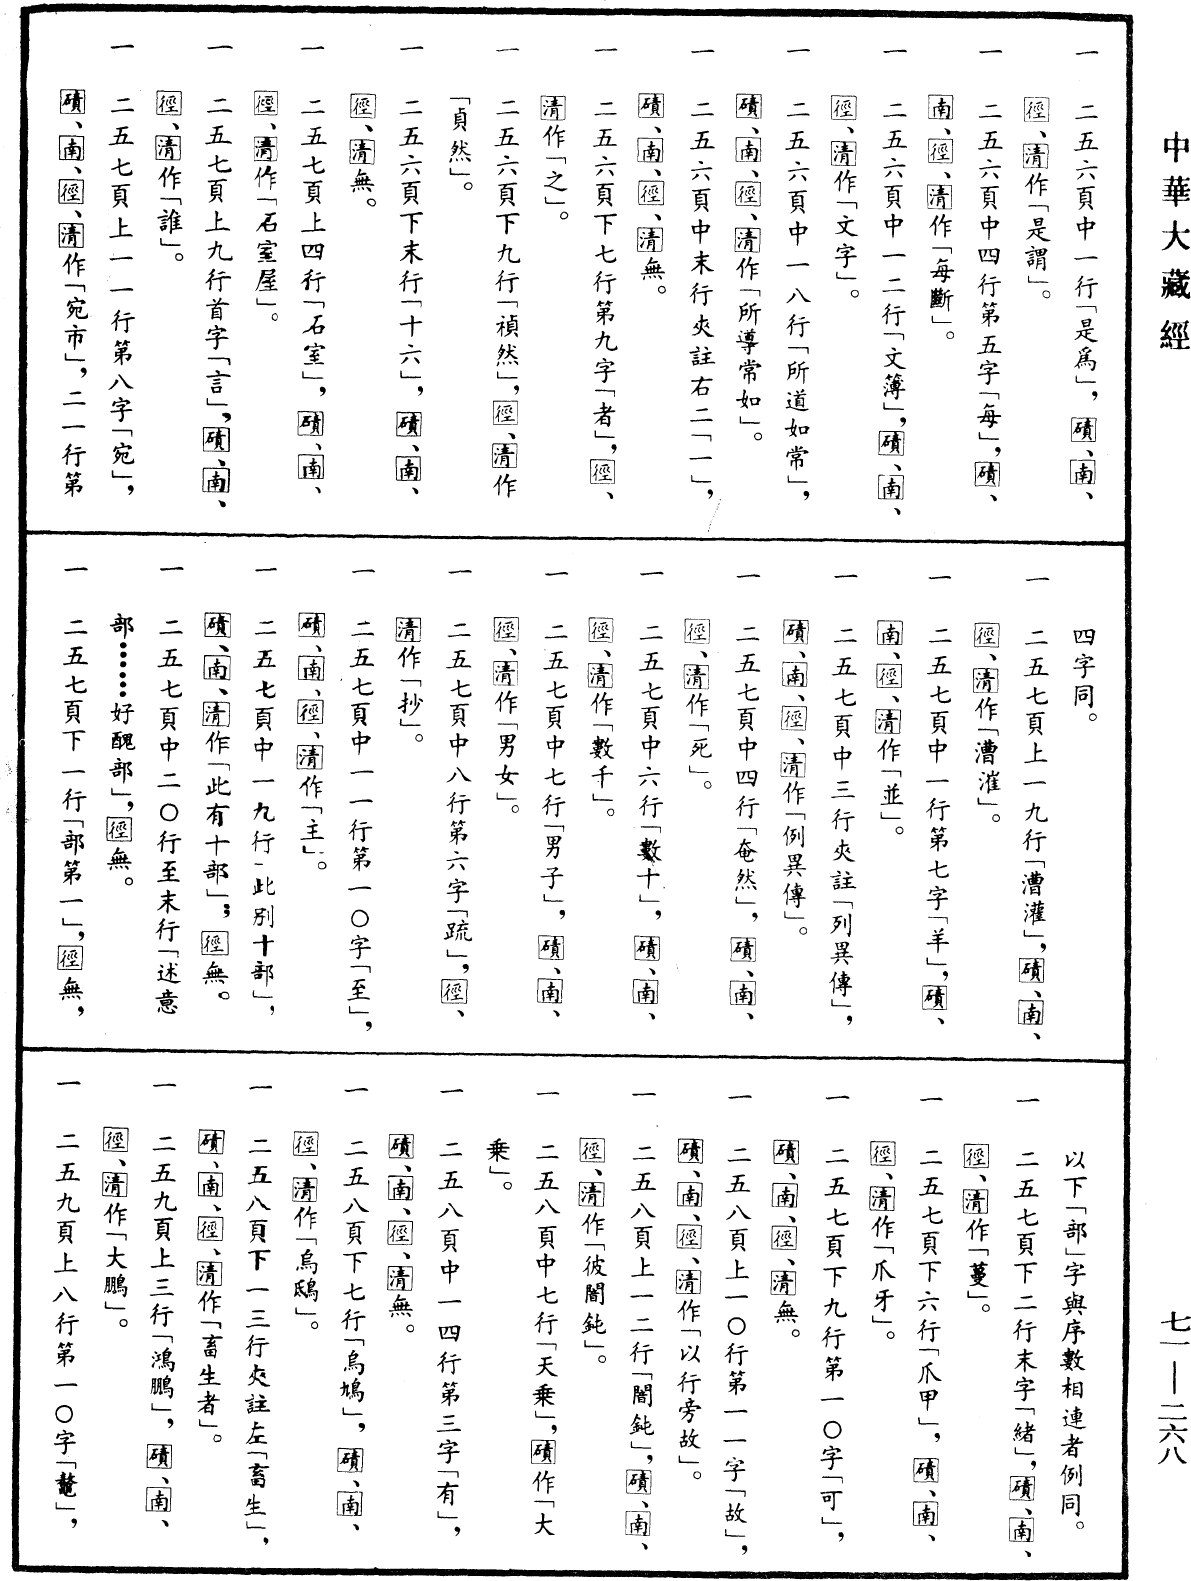 中華大藏經
七一—二六八
一　二五六頁中一行「是爲」，磧、南、
徑、清作「是謂」。
一　二五六頁中四行第五字「每」，磧、
南、徑、清作「每斷」。
一　二五六頁中一二行「文簿」，磧、南、
徑、清作「文字」。
一　二五六頁中一八行「所道如常」，
磧、南、徑、清作「所導常如」。
一　二五六頁中末行夾註右二「一」，
磧、南、徑、清無。
一　二五六頁下七行第九字「者」，徑、
清作「之」。
一　二五六頁下九行「禎然」，徑、清作
「貞然」。
一　二五六頁下末行「十六」，磧、南、
徑、清無。
一　二五七頁上四行「石室」，磧、南、
徑、清作「石室屋」。
一　二五七頁上九行首字「言」，磧、南、
徑、清作「誰」。
一　二五七頁上一一行第八字「宛」，
磧、南、徑、清作「宛市」，二一行第
四字同。
一　二五七頁上一九行「漕灌」，磧、南、
徑、清作「漕漼」。
一　二五七頁中一行第七字「羊」，磧、
南、徑、清作「並」。
一　二五七頁中三行夾註「列異傳」，
磧、南、徑、清作「例異傳」。
一　二五七頁中四行「奄然」，磧、南、
徑、清作「死」。
一　二五七頁中六行「數十」，磧、南、
徑、清作「數千」。
一　二五七頁中七行「男子」，磧、南、
徑、清作「男女」。
一　二五七頁中八行第六字「疏」，徑、
清作「抄」。
一　二五七頁中一一行第一〇字「至」，
磧、南、徑、清作「主」。
一　二五七頁中一九行「此別十部」，
磧、南、清作「此有十部」；徑無。
一　二五七頁中二〇行至末行「述意
部……好醜部」，徑無。
一　二五七頁下一行「部第一」，徑無，
以下「部」字與序數相連者例同。
一　二五七頁下二行末字「緒」，磧、南、
徑、清作「蔓」。
一　二五七頁下六行「爪甲」，磧、南、
徑、清作「爪牙」。
一　二五七頁下九行第一〇字「可」，
磧、南、徑、清無。
一　二五八頁上一〇行第一一字「故」，
磧、南、徑、清作「以行旁故」。
一　二五八頁上一二行「闇鈍」，磧、南、
徑、清作「彼闇鈍」。
一　二五八頁中七行「天乗」，磧作「大
乗」。
一　二五八頁中一四行第三字「有」，
磧、南、徑、清無。
一　二五八頁下七行「烏鳩」，磧、南、
徑、清作「烏鴟」。
一　二五八頁下一三行夾註左「畜生」，
磧、南、徑、清作「畜生者」。
一　二五九頁上三行「鴻鵬」，磧、南、
徑、清作「大鵬」。
一　二五九頁上八行第一〇字「鼇」，